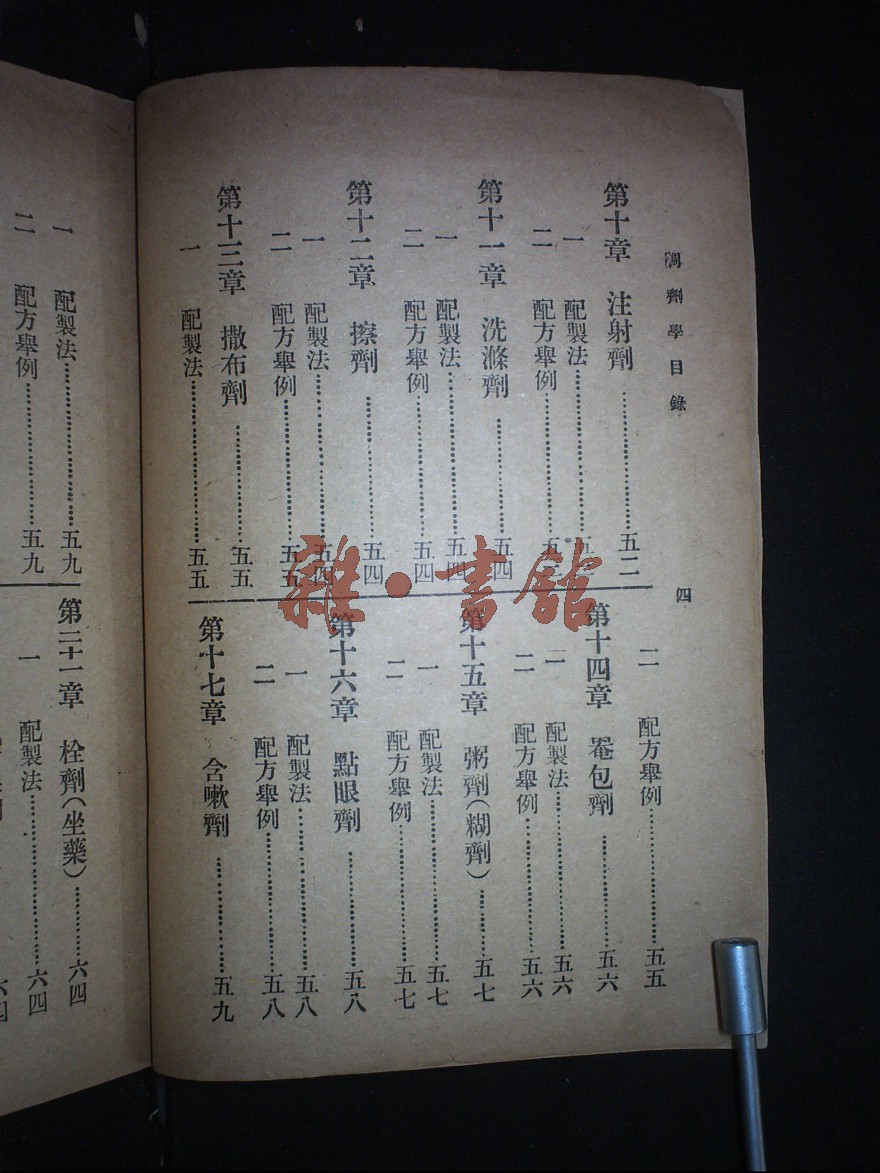 調劑學目錄
四
第十章 注射劑…………五二
一 配製法…………五
二 配方舉例…………五
第十一章 洗滌劑…………五四
一 配製法…………五四
二 配方舉例…………五四
第十二章 擦劑…………五四
一 配製法…………五四
二 配方舉例…………五五
第十三章 撒布劑…………五五
一 配製法…………五五
二 配方舉例…………五五
第十四章 罨包劑…………五六
一 配製法…………五六
二 配方舉例…………五六
第十五章 粥劑(糊劑)…………五七
一 配製法…………五七
二 配方舉例…………五七
第十六章 點眼劑…………五八
一 配製法…………五八
二 配方舉例…………五八
第十七章 含嗽劑…………五九
一 配製法…………五九
二 配方舉例…………五九
第二十一章 栓劑(坐藥)…………六四
一 配製法…………六四
六四
雜·書館